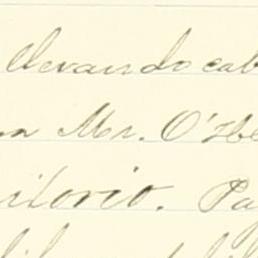 llevando cab
n Mr. O'He
itorio. Pa